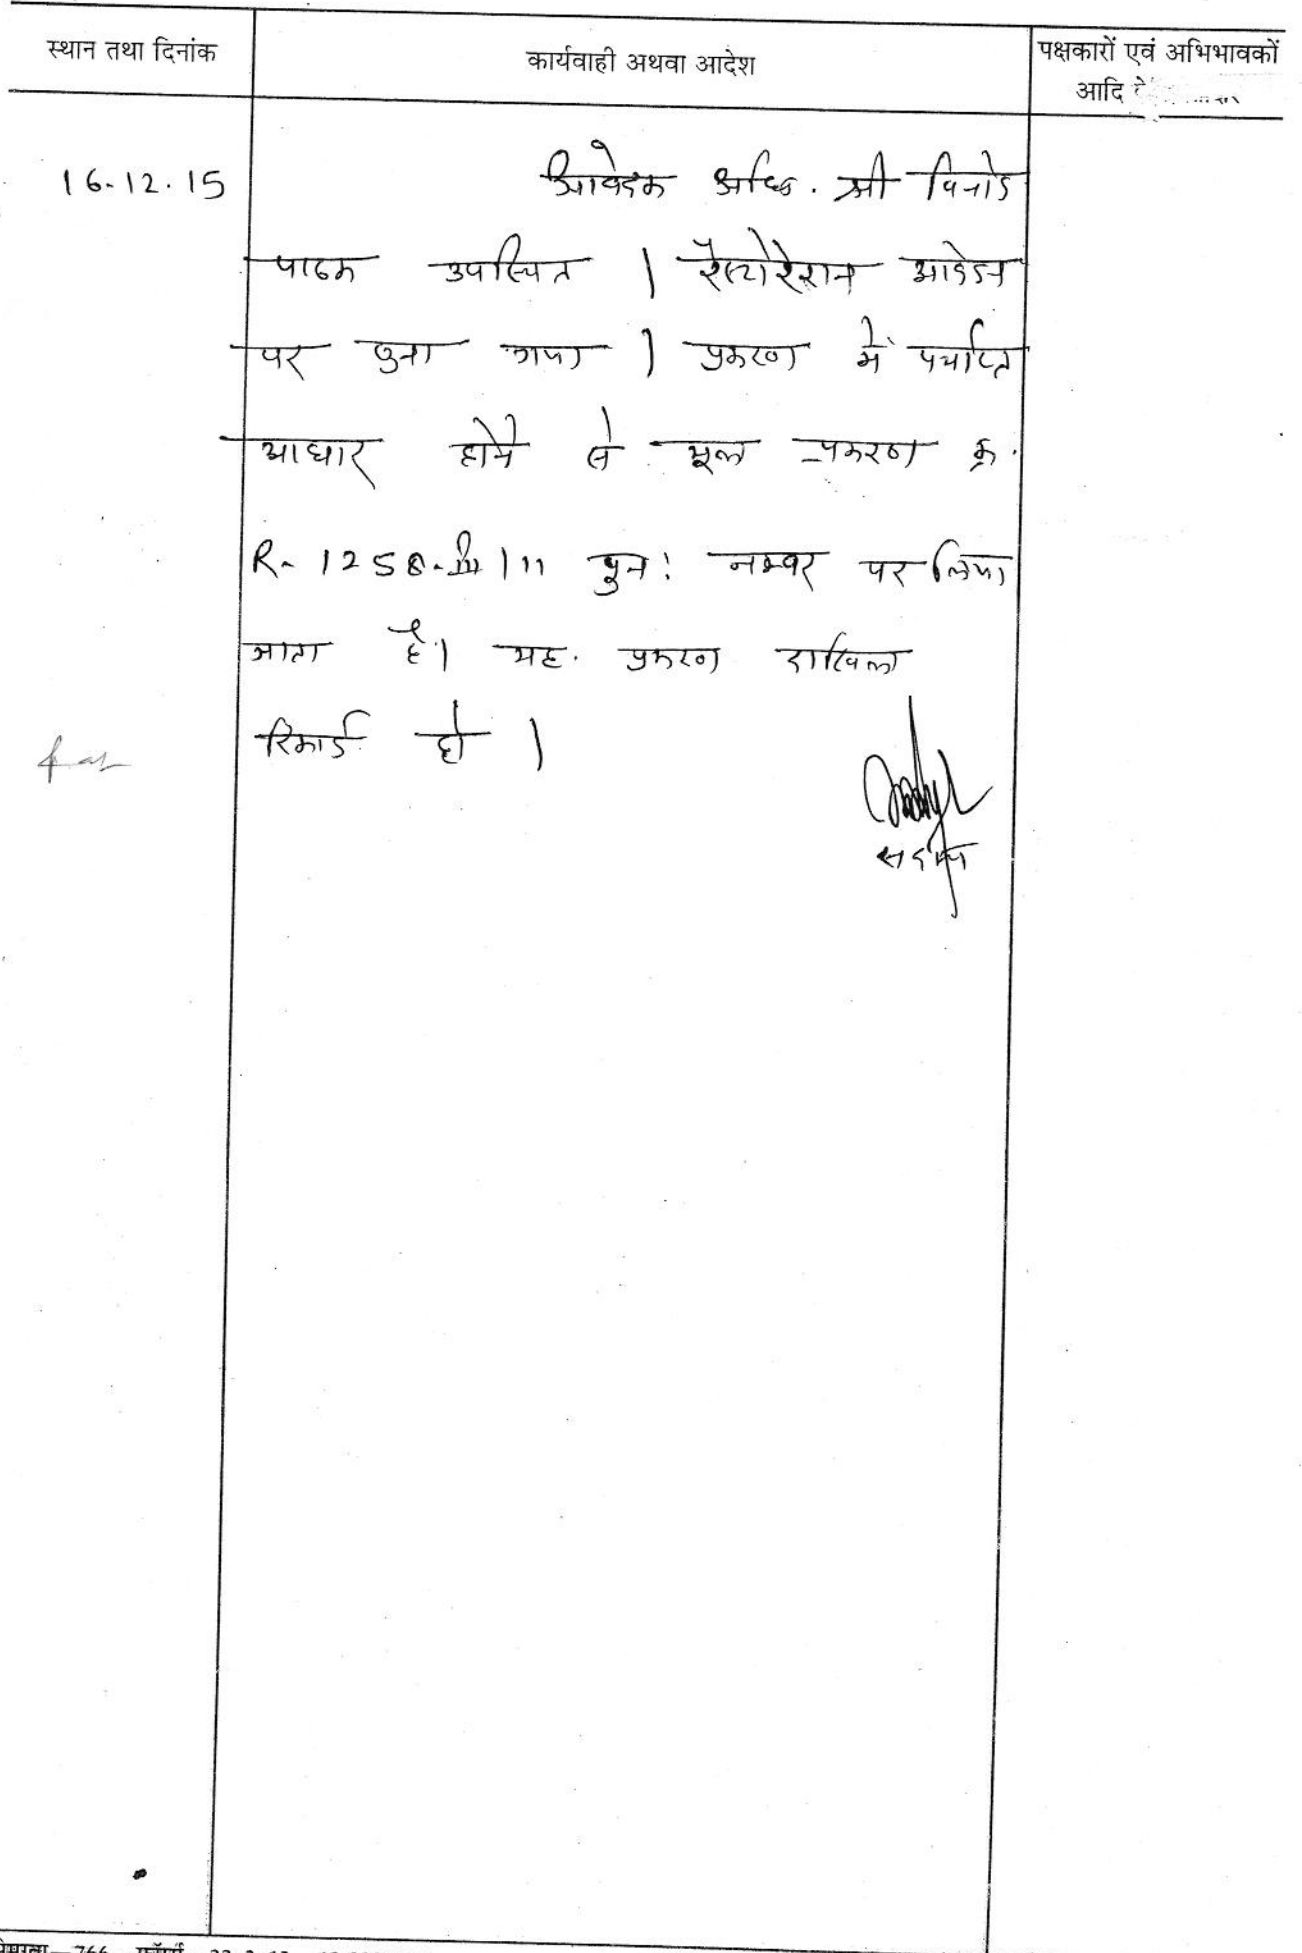 स्थान तथा दिनांक
कार्यवाही अथवा आदेश
पक्षकारों एवं अभिभावकों
आदि के
16.12.15
आवेदक अधि. श्री विनोद
पाठक उपस्थित । रेस्टोरेशन आवेदन
पर सुना गया । प्रकरण में पर्याप्त
आधार होने से मूल प्रकरण क्र.
R- 1258-III/11 पुनः नम्बर पर लिया
जाता है। यह प्रकरण दाखिल
रिकार्ड हो ।
सदस्य